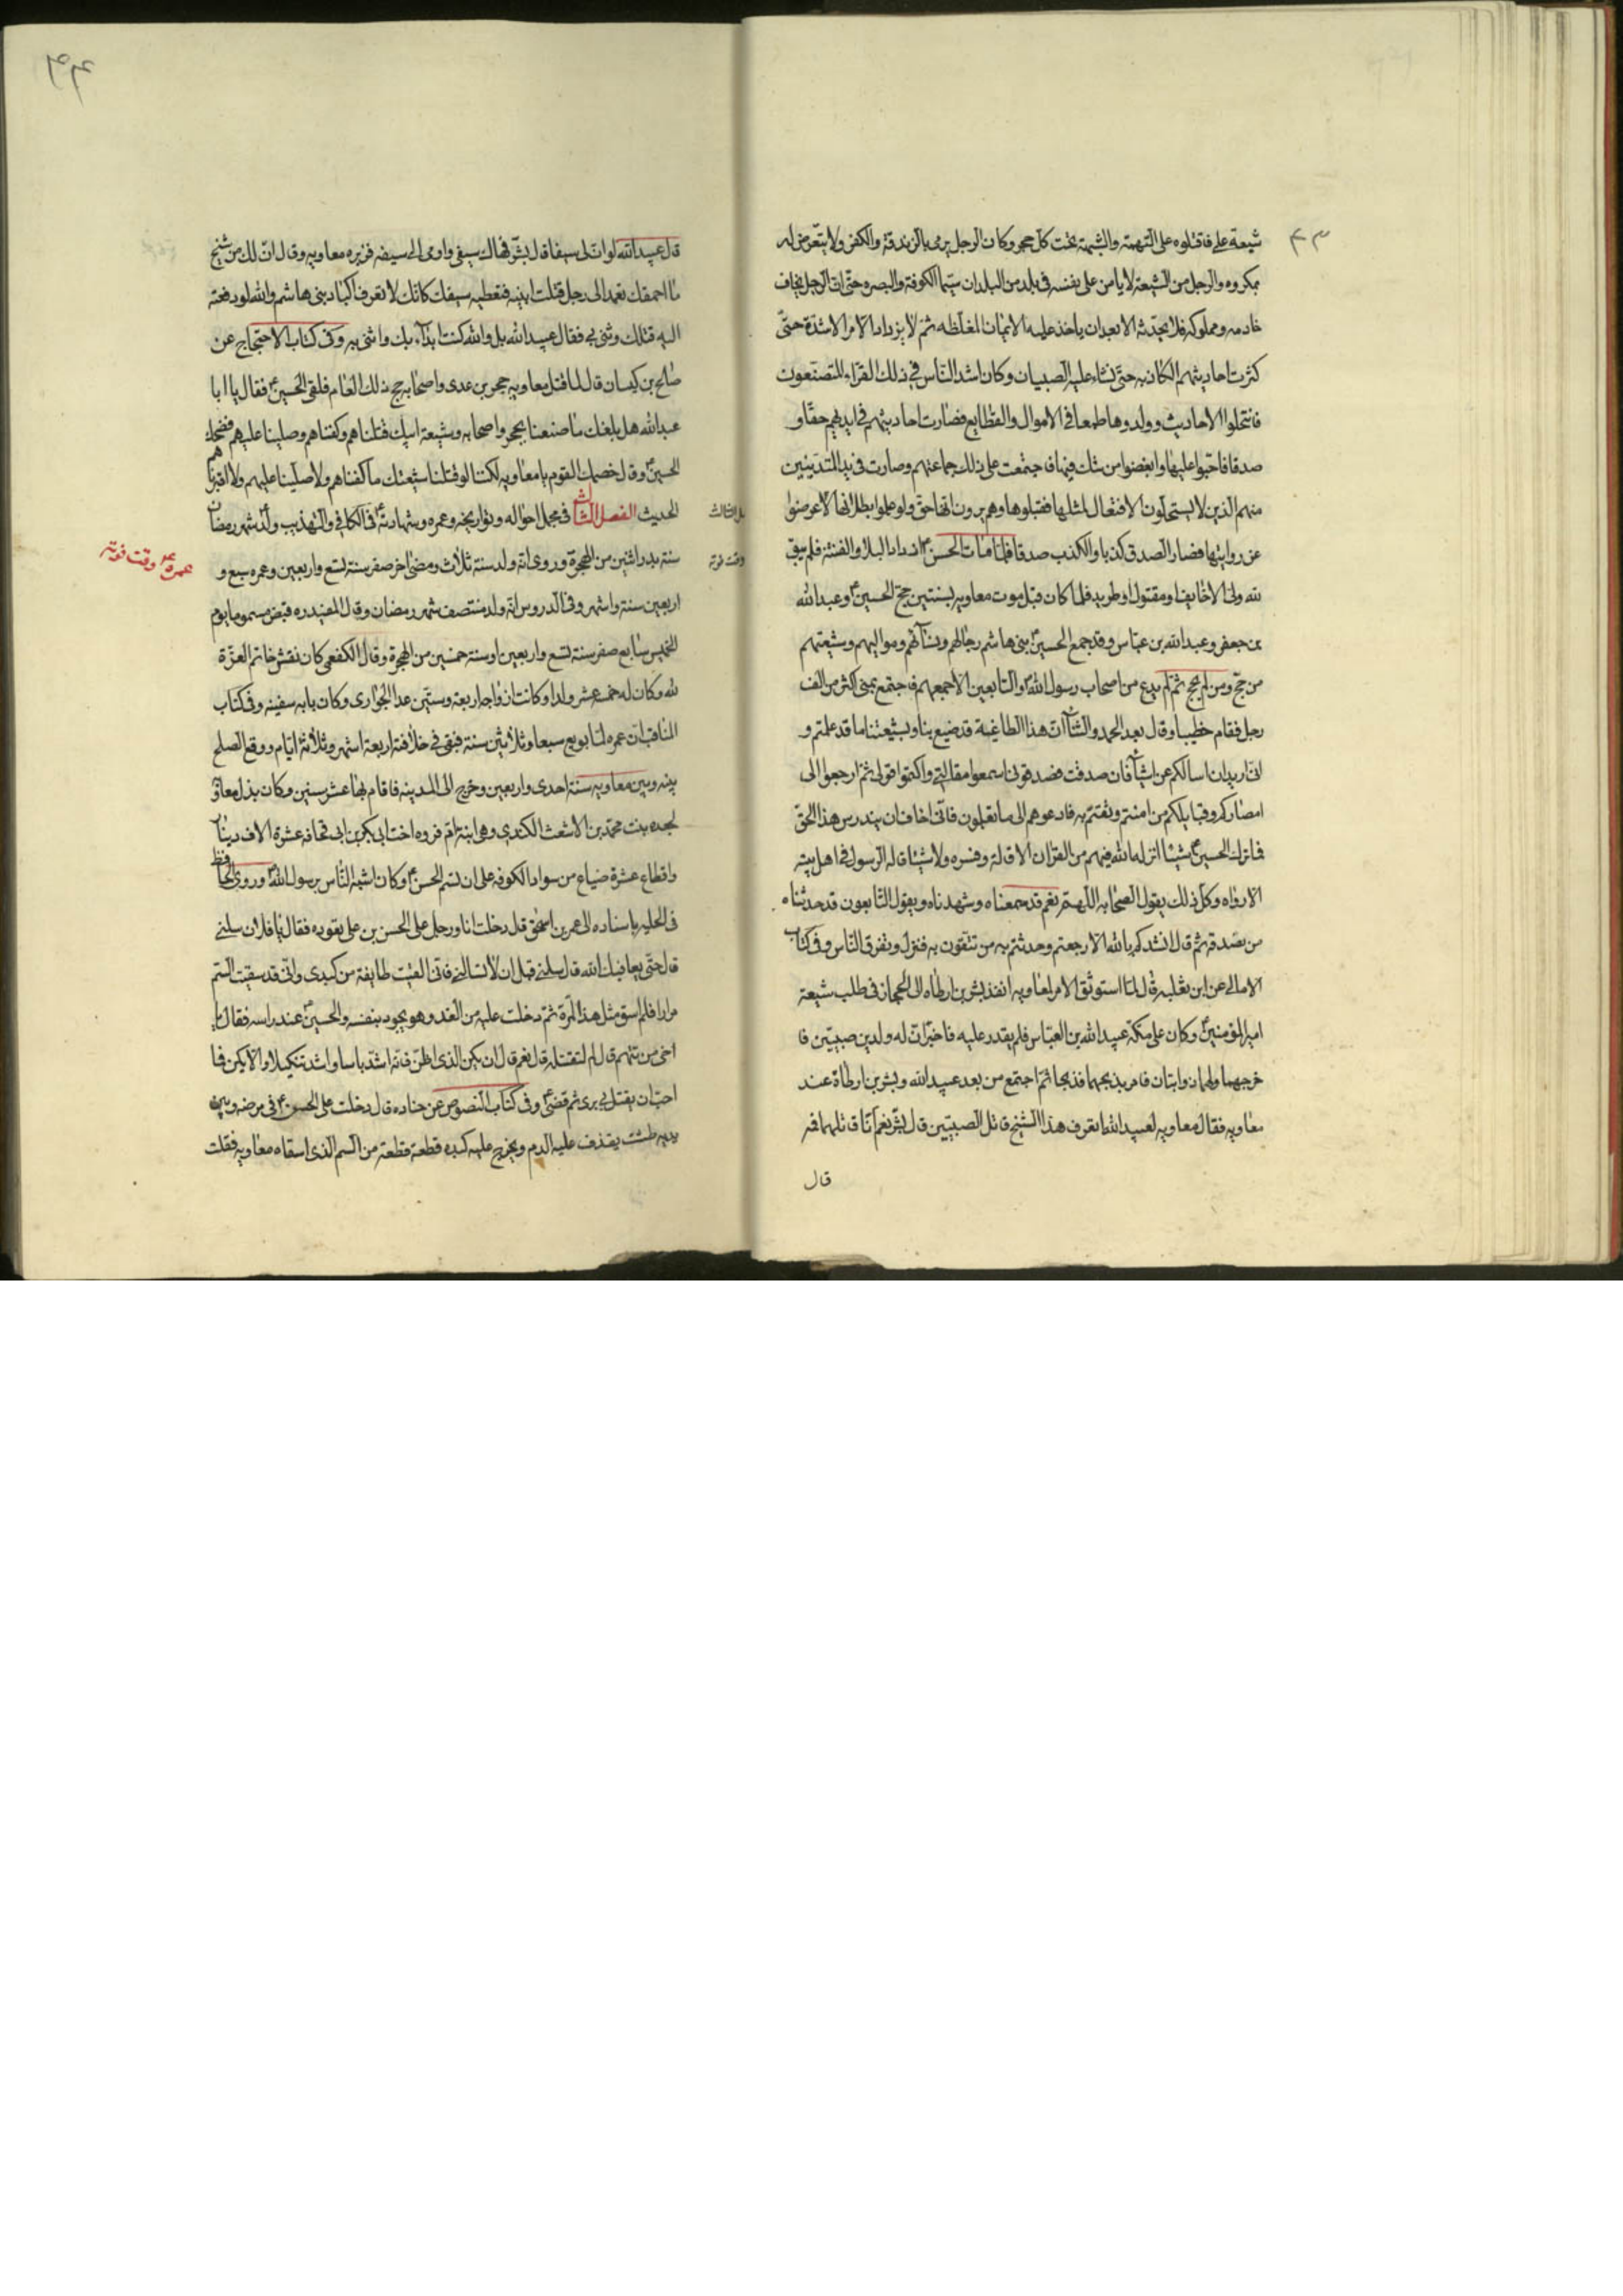 شيعة علي فاقتلوه على التهمة والشبهة تحت كل حجر وكان الرجل يرمى بالزندقة والكفر ولا يتعرض له
بمكروه والرجل من الشيعة لا يامن على نفسه في بلد من البلدان سيما الكوفة والبصره حتى ان الرجل يخاف
خادمه ومملوكه فلا يحدثه الا بعد ان ياخذ عليه الايمان المغلظه ثم لا يزداد الامر الا شدة حتى
كثرت احاديثهم الكاذبه حتى نشاء عليه الصبيان وكان اشد الناس في ذلك القراء المتصنعون
فانتحلوا الاحاديث وولدوها طمعا في الاموال والقطايع فصارت احاديثهم في ايديهم حقا و
صدقا فاحبوا عليها وابغضوا من شك فيها فاجتمعت على ذلك جماعتهم وصارت في يد المتدينين
منهم الذين لا يستحلون الافتعال لمثلها فقبلوها وهم يرون انها حق ولو علموا بطلانها لاعرضوا
عن روايتها فصار الصدق كذبا والكذب صدقا فلما مات الحسن ع ازداد البلاء والفتنة فلم يبق
لله ولي الا خايفا ومقتول او طريد فلما كان قبل موت معاويه بسنتين حج الحسين ع وعبد الله
بن جعفر وعبد الله بن عباس وقد جمع الحسين ع بني هاشم رجالهم ونسائهم ومواليهم وشيعتهم
من حج ومن لم يحج ثم لم يدع من اصحاب رسول الله والتابعين الا جمعهم فاجتمع بمنى اكثر من الف
رجل فقام خطيبا وقال بعد الحمد والثناء ان هذا الطاغية قد صنع بنا وبشيعتنا ما قد علمتم و
اني اريد ان اسالكم عن اشياء فان صدقت فصدقوني اسمعوا مقالتي واكتموا قولي ثم ارجعوا الى
امصاركم وقبايلكم من امنتم وثقتم به فادعوهم الى ما تعلمون فاني اخاف ان يندرس هذا الحق
فما ترك الحسين ع شيئا انزله الله فيهم من القران الا قاله وفسره ولا شيئا قاله الرسول في اهل بيته
الا رواه وكل ذلك يقول الصحابه اللهم نعم قد سمعناه وشهدناه ويقول التابعون قد حدثناه
من نصدقه ثم قال انشدكم بالله الا رجعتم وحدثتم به من تثقون به فنزل وتفرق الناس وفي كتاب
الامالي عن ابن تغلبه قال لما استوثق الامر لمعاويه انفذ بشر بن ارطاه الى الحجاز في طلب شيعة
امير المؤمنين ع وكان على مكة عبيد الله بن العباس فلم يقدر عليه فاخبر ان له ولدين صبيين فا
خرجهما ولهما ذوابتان فامر بذبحهما فذبحا ثم اجتمع من بعد عبيد الله وبشر بن ارطاة عند
معاويه فقال معاويه لعبيد الله اتعرف هذا الشيخ قاتل الصبيين قال بشر نعم انا قاتلهما فمه
قال
قال عبيد الله لو ان لي سيفا قال بشر فهاك سيفي واومى الى سيفه فزبره معاويه وقال اف لك من شيخ
ما احمقك تعمد الى رجل قتلت ابنيه فتعطيه سيفك كانك لا تعرف اكباد بني هاشم والله لو دفعته
اليه قتلك وثنى بي فقال عبيد الله بل والله كنت ابدا بك واثني به وفي كتاب الاحتجاج عن
صالح بن كيسان قال لما قتل معاويه حجر بن عدي واصحابه حج ذلك العام فلقي الحسين ع فقال يا ابا
عبد الله هل بلغك ما صنعنا بحجر واصحابه وشيعة ابيك قتلناهم وكفناهم وصلينا عليهم فضحك
الحسين ع وقال خصمك القوم يا معاويه لكننا لو قتلنا شيعتك ما كفناهم ولا صلينا عليهم ولا اقبرناهم
الحديث الفصل الثالث في مجمل احواله وتواريخه وعمره وشهادته ع في الكافي والتهذيب ولد شهر رمضان
سنة بدر اثنين من الهجرة وروي انه ولد سنة ثلاث ومضى اخر صفر سنة تسع واربعين وعمره سبع و
اربعين سنة واشهر وفي الدروس انه ولد منتصف شهر رمضان وقال المفيد ره قبض مسموما يوم
الخميس سابع صفر سنة تسع واربعين او سنة خمسين من الهجرة وقال الكفعمي كان نقش خاتم العزة
لله وكان له خمسة عشر ولدا وكانت ازواجه اربعة وستين عدا الجواري وكان بابه سفينه وفي كتاب
المناقب ان عمره لما بويع سبعا وثلاثين سنة فبقي في خلافته اربعة اشهر وثلاثة ايام ووقع الصلح
بينه وبين معاويه سنة احدى واربعين وخرج الى المدينه فاقام بها عشر سنين وكان بذل معاويه
لجعده بنت محمد بن الاشعث الكندي وهي ابنة ام فروه اخت ابي بكر بن ابي قحافه عشرة الاف دينار
واقطاع عشرة ضياع من سواد الكوفه على ان تسم الحسن ع وكان اشبه الناس برسول الله وروى الحافظ
في الحليه باسناده الى عمر بن اسحق قال دخلت انا ورجل على الحسن بن علي نعوده فقال يا فلان سلني
قال حتى يعافيك الله قال سلني قبل ان لا تسالني فاني القيت طايفة من كبدي واني قد سقيت السم
مرارا فلم اسق مثل هذا المرة ثم دخلت عليه من الغد وهو يجود بنفسه والحسين ع عند راسه فقال يا
اخي من تتهم قال لم لتقتله قال نعم قال ان يكن الذي اظن فانه اشد باسا واشد تنكيلا والا يكن فما
احب ان يقتل بي بري ثم قضى ع وفي كتاب النصوص عن جناده قال دخلت على الحسن ع في مرضه وبين
يديه طشت يقذف عليه الدم ويخرج عليه كبده قطعة قطعة من السم الذي اسقاه معاويه فقلت
عمره ع وقت فوته